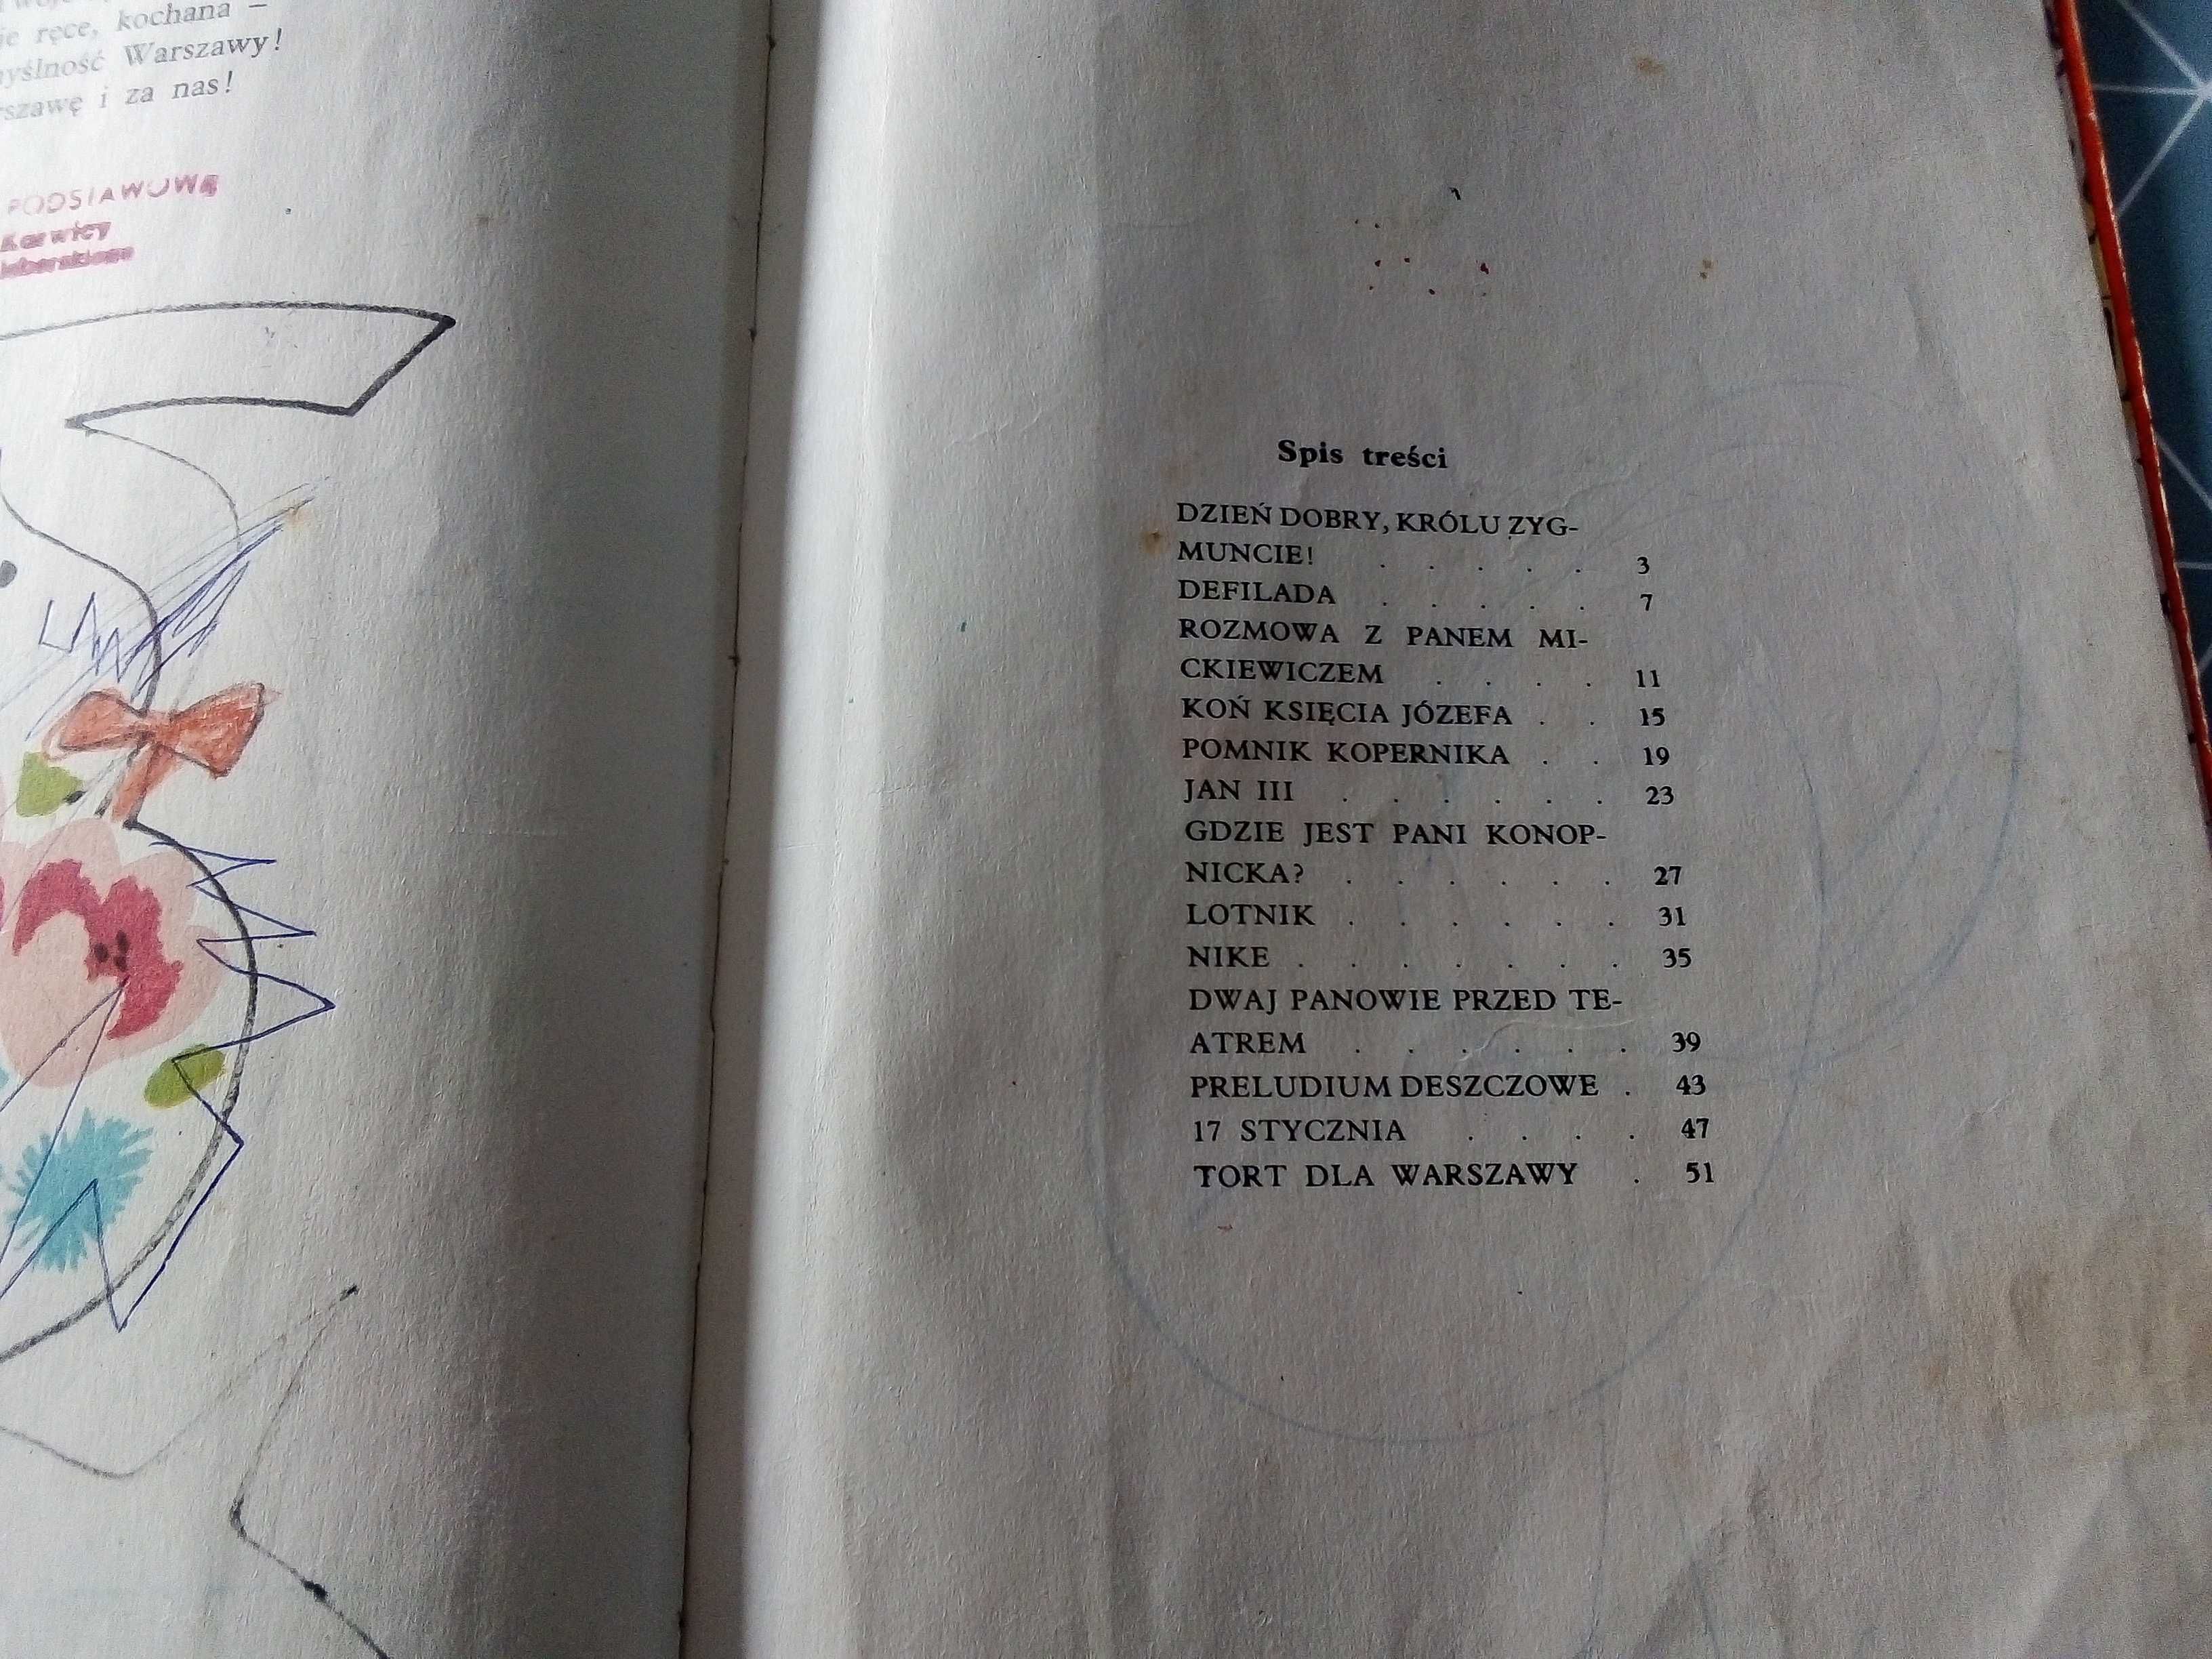 ręce, kochana –
Warszawy!
i za nas!
PODSTAWOWE
Karwicy
Spis treści
DZIEŃ DOBRY, KRÓLU ZYG-
MUNCIE! . . . . . 3
DEFILADA . . . . . 7
ROZMOWA Z PANEM MI-
CKIEWICZEM . . . . 11
KOŃ KSIĘCIA JÓZEFA . . 15
POMNIK KOPERNIKA . . 19
JAN III . . . . . . 23
GDZIE JEST PANI KONOP-
NICKA? . . . . . . 27
LOTNIK . . . . . . 31
NIKE . . . . . . . 35
DWAJ PANOWIE PRZED TE-
ATREM . . . . . . 39
PRELUDIUM DESZCZOWE . 43
17 STYCZNIA . . . . 47
TORT DLA WARSZAWY . 51